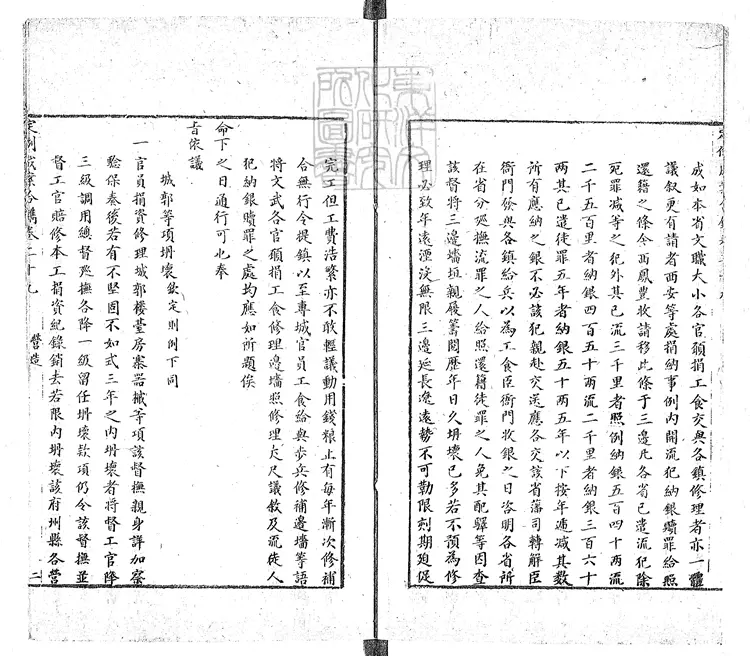 成如本省文職大小各官願捐工食交與各鎮修理者亦一體
議敘更有請者西安等處捐納事例內開流犯納銀贖罪給照
還籍之條今西鳳豐收請移此條于三邊凡各省已遣流犯除
死罪減等之犯外其已流三千里者照例納銀五百四十兩流
二千五百里者納銀四百五十兩流二千里者納銀三百六十
兩其已遣徒罪五年者納銀五十兩五年以下按年遞減其數
所有應納之銀不必該犯親赴交送應各交該省藩司轉解臣
衙門發與各鎮給兵以為工食臣衙門收銀之日咨明各省所
在省分廵撫流罪之人給照還籍徒罪之人免其配驛等因查
該督將三邊墻垣親履籌閱歷年日久坍壞已多若不預為修
理必致年遠湮沒無限三邊延長遼遠勢不可勒限刻期廹促
完工但工費浩繁亦不敢輕議動用錢糧止有每年漸次修補
合無行令提鎮以至專城官員工食給與步兵修補邊墻等語
將文武各官願捐工食修理邊墻照修理丈尺議敘及流徒人
犯納銀贖罪之處均應如所題俟
命下之日通行可也奉
旨依議
城郭等項坍壞 欽定則例下同
一官員捐資修理城郭樓臺房寨器械等項該督撫親身詳加察
驗保奏後若有不堅固不如式三年之內坍壞者將督工官降
三級調用總督廵撫各降一級留任坍壞款項仍令該督撫並
督工官賠修本工捐資紀錄銷去若限內坍壞該府州縣各營
定例成案合鐫卷二十九 營造 二